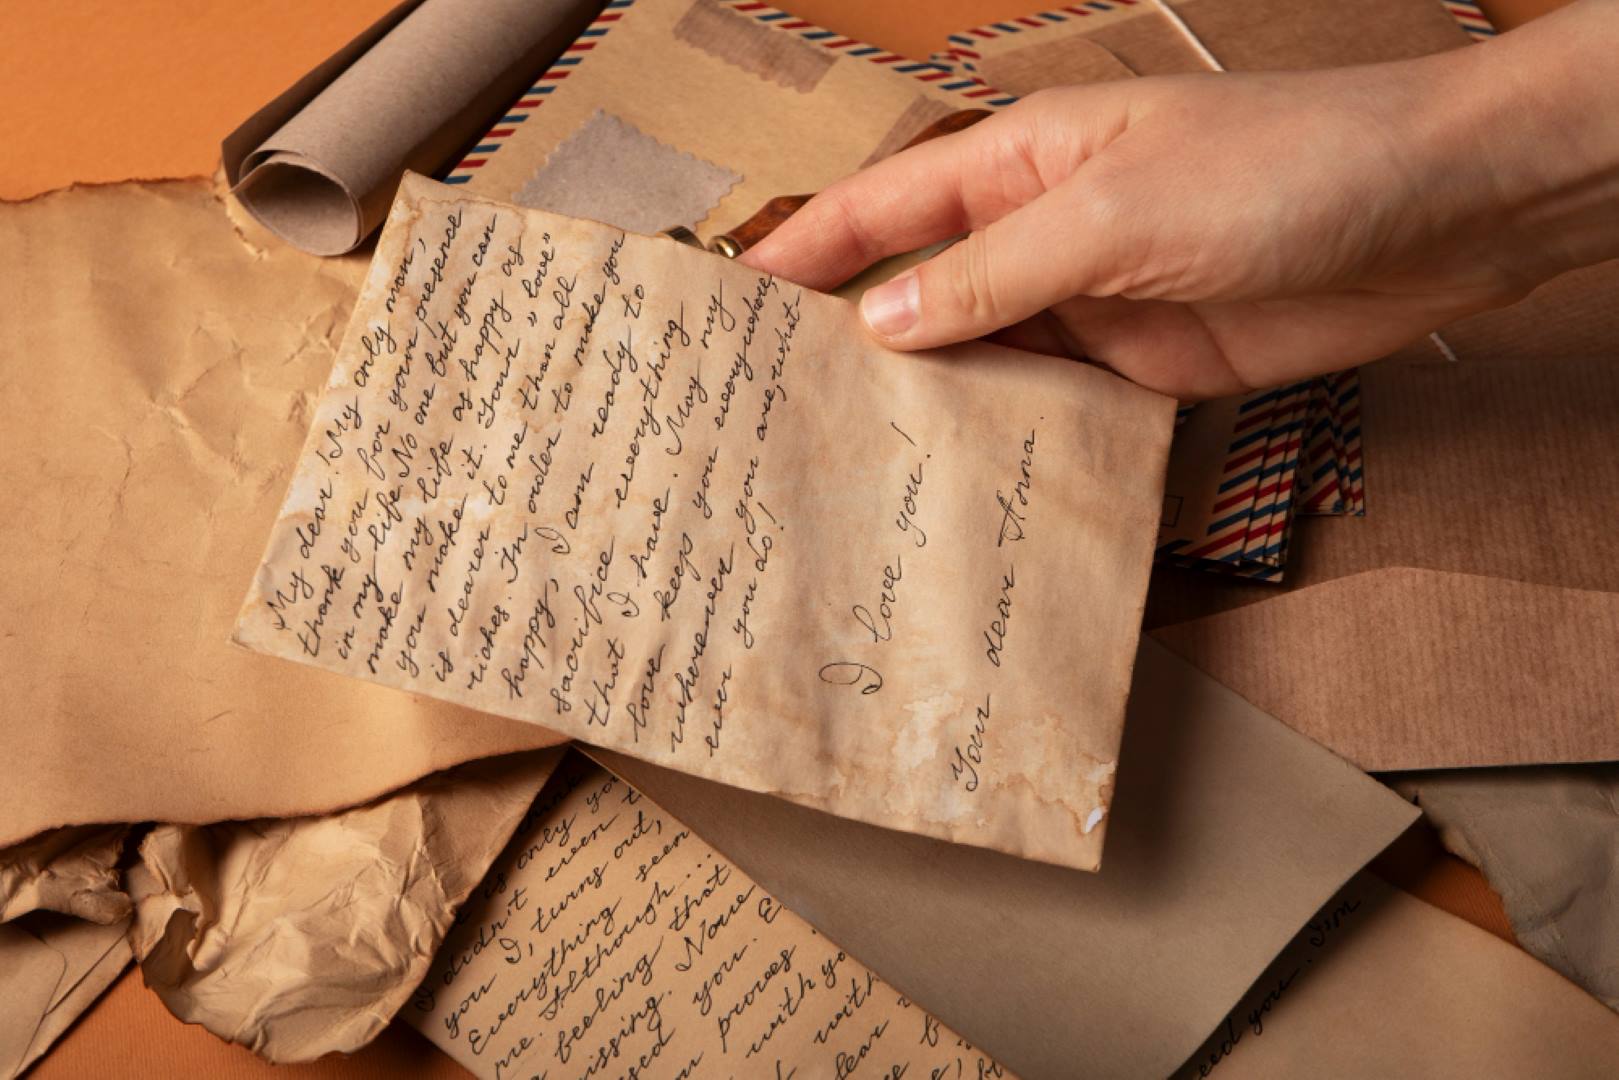 My dear! My only man,
thank you for your presence
in my life. No one but you can
make my life as happy as
you make it. Your "love"
is dearer to me than all
riches. In order to make you
happy, I am ready to
sacrifice everything
that I have. May my
love keep you everywhere,
wherever you are, what-
ever you do!
I love you!
Your dear Anna.
is only yo
I didn't even t
you I, turns out,
Everything seem
me. Although...
a feeling that
issing. None
sed you. E
u proves
with yo
with
dear
need you. I'm